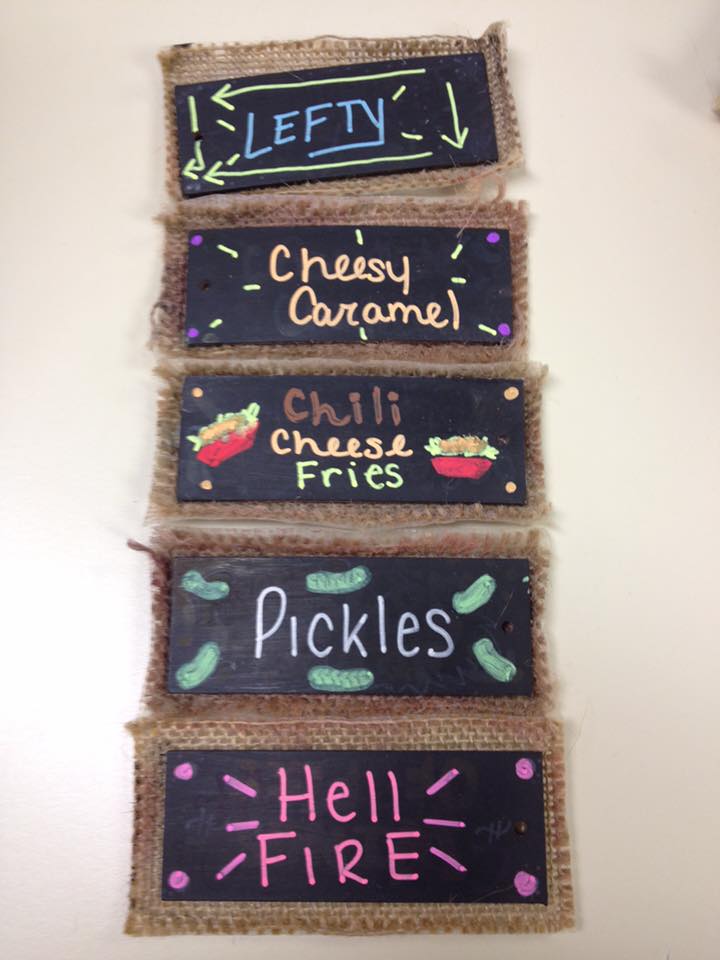 LEFTY
Cheesy
Caramel
Chili
Cheese
Fries
Pickles
Hell
FIRE